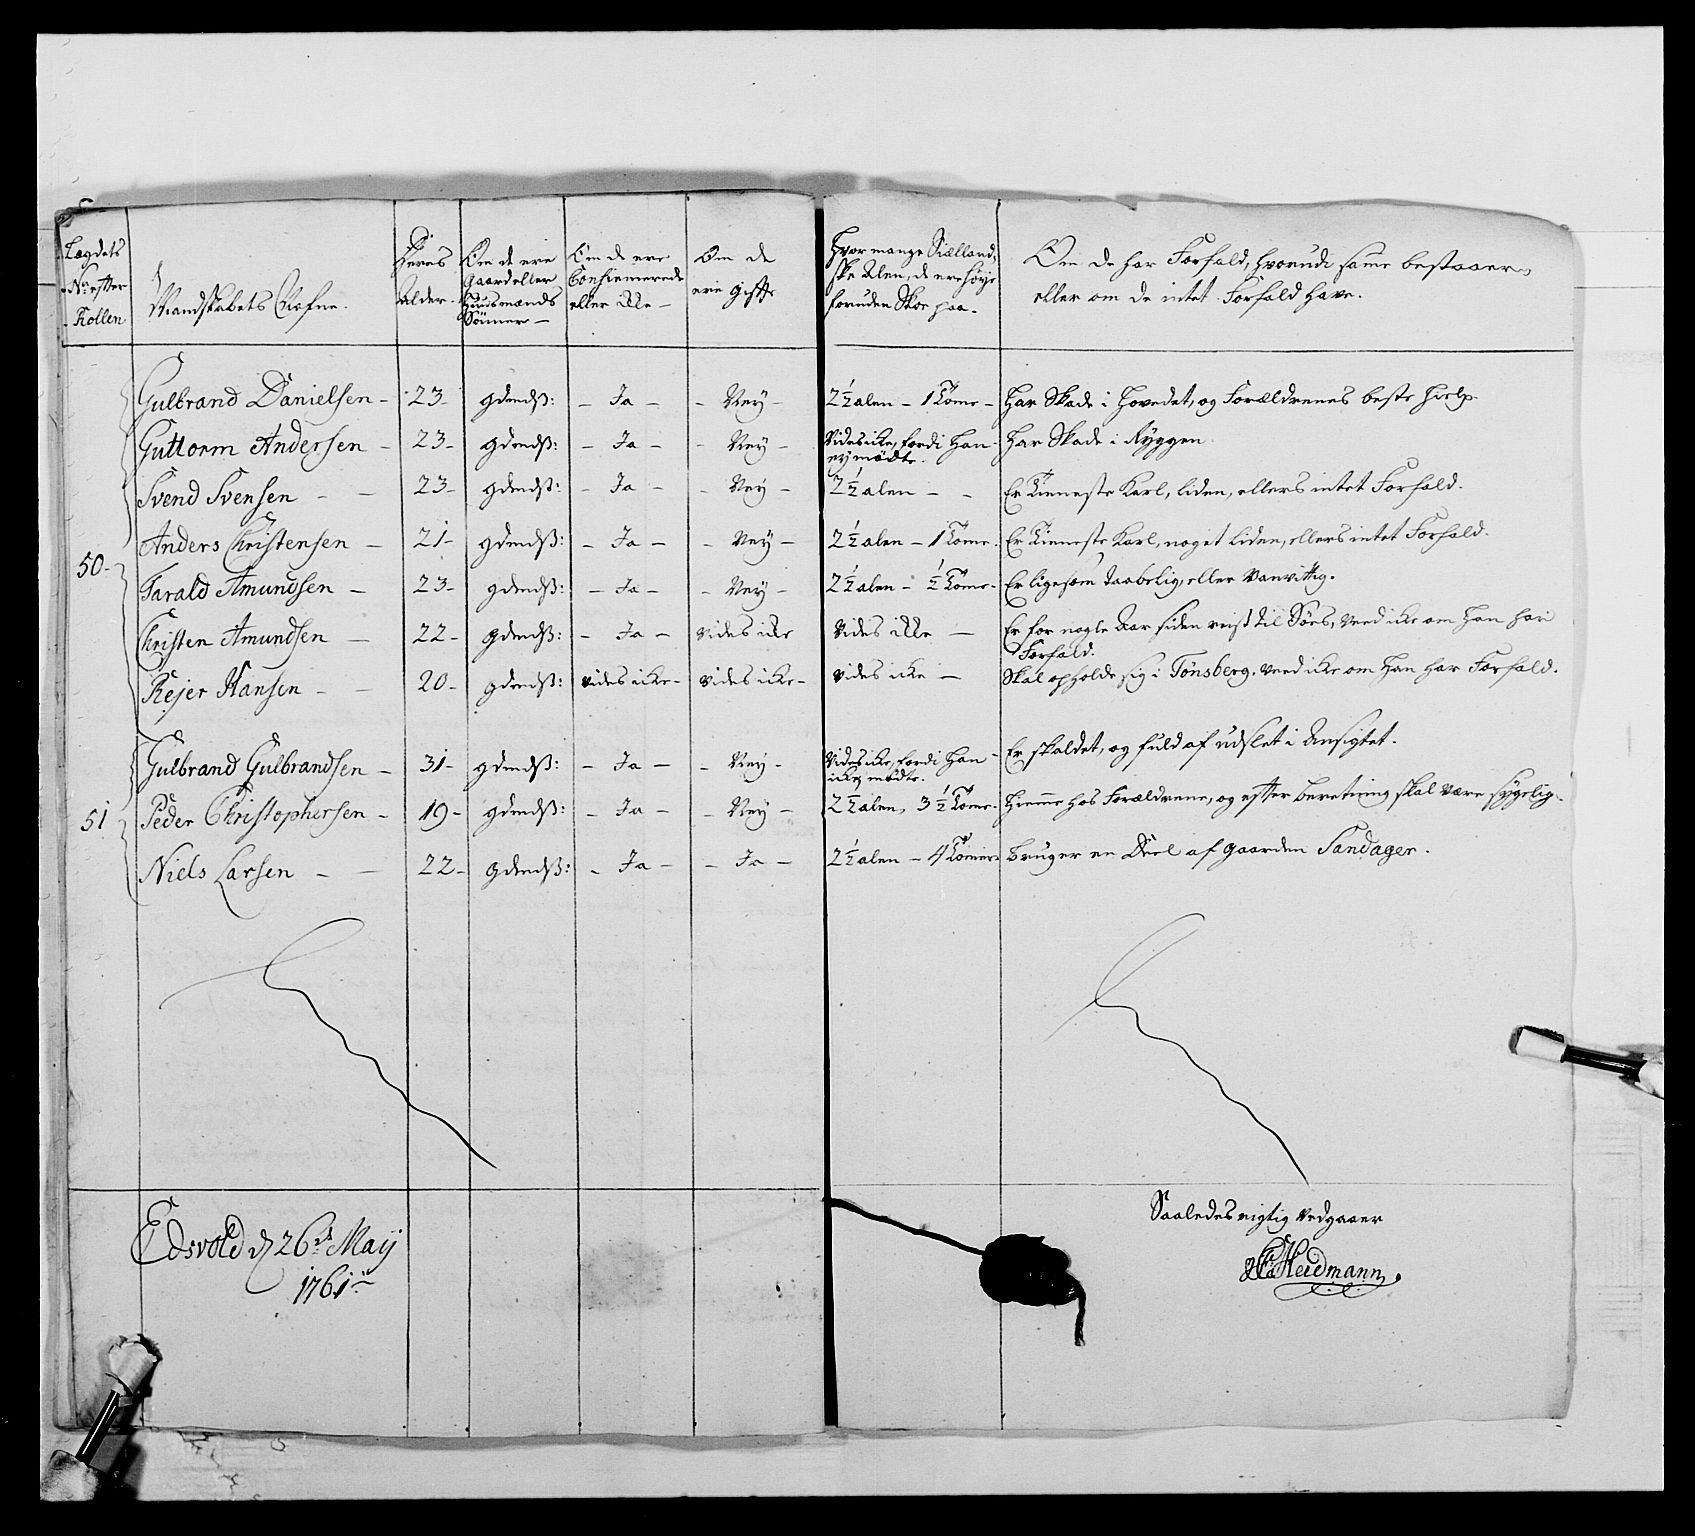 Lægdets
No: efter
Rollen
Mandskabets Nafne.
Deres
Alder.
Om de ere
Gaard eller
Huusmands
Sönner
Om de ere
Confirmerede
eller ikke
Om de
ere Gifte
Hvor mange Siælland,,
ske Alen, de ere høye
foruden Skoe paa.
Om de har Forfald, hvorudi same bestaaer,
eller om de intet Forfald have.
Gulbrand Danielsen - 23 gdmdß: - Ja - - Ney - 2½ alen - 1 Tome - Har Skade i Hovedet, og Forældrenes beste Hielp
Guttorm Andersen - 23 - gdmdß: - Ja - - Ney - Vides icke, fordi Han Har Skade i Ryggen
ey mødte.
Svend Svensen - - 23 - gdmdß: - Ja - - Ney - 2½ alen - - Er Tieneste Karl, liden, ellers intet Forfald.
50 - Anders Christensen - 21 - gdmdß: - Ja - - Ney - 2½ alen - 1 Tome. Er Tieneste Karl, noget liden, ellers intet Forfald.
Tarald Amundsen - 23 - gdmdß: - Ja - - Ney - 2½ alen - ½ Tome - Er ligesom taabelig, eller Vanvittig.
Christen Amundsen - 22 - gdmdß: - Ja - Vides ikke Vides ikke - Er for nogle Aar siden reist til Søes, Veed icke om Han har
Forfald.
Rejer Hansen - - 20 - gdmdß: vides icke - vides icke - vides icke - Skal opholde sig i Tønsberg. Veed icke om Han har Forfald.
Gulbrand Gulbrandsen - 31 - gdmdß: - Ja - - Ney - Vides icke, fordi Han Er skaldet, og fuld af udslet i Ansigtet.
icke mødte.
51 Peder Christophersen - 19 - gdmdß: - Ja - - Ney - 2½ alen, 3½ Tome - Hieme hos Forældrene, og efter beretning skal være sygelig.
Niels Larsen - - 22 - gdmdß: - Ja - - Ja - 2½ alen - 4 Tomer Bruger en Deel af gaarden Sandager.
Edsvold d 26de Maij
1761
Saaledes rigtig vedgaaer
Heidmann.